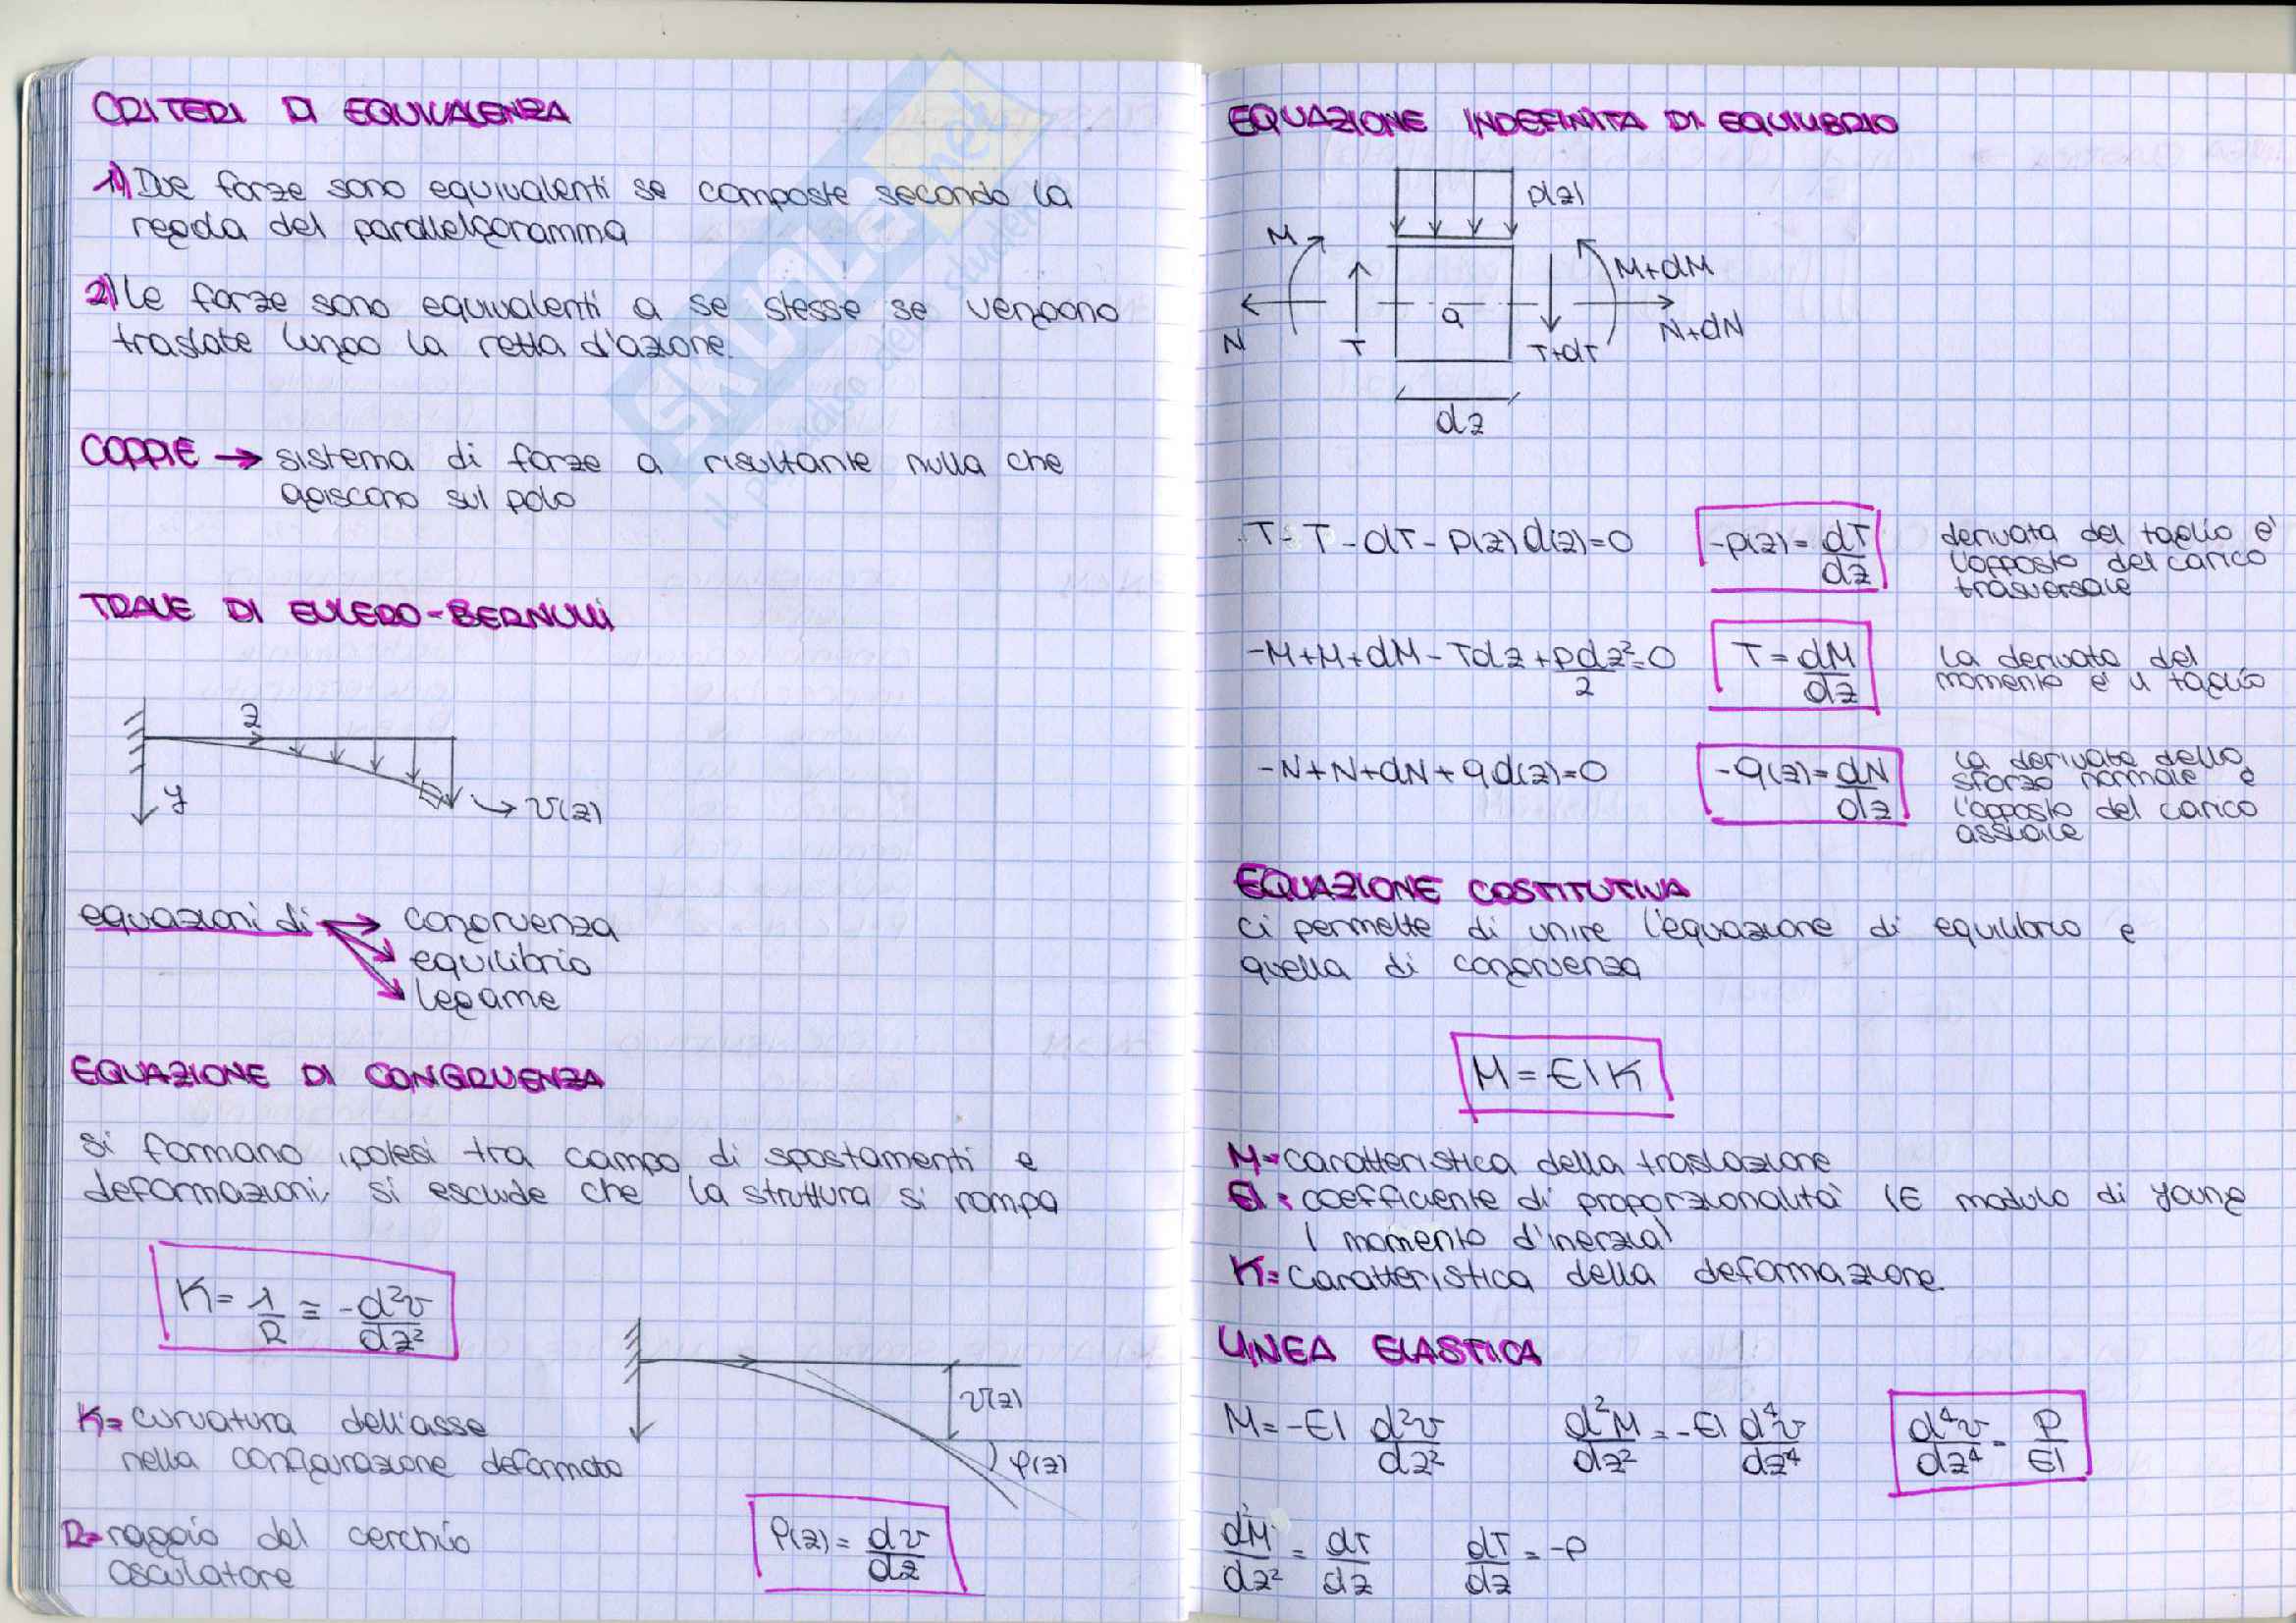 CRITERI DI EQUIVALENZA
1) Due forze sono equivalenti se composte secondo la
regola del parallelgoramma
2) Le forze sono equivalenti a se stesse se vengono
traslate lungo la retta d'azione.
COPPIE → sistema di forze a risultante nulla che
agiscono sul polo
TRAVE DI EULERO-BERNULLI
z
y
v(z)
equazioni di → congruenza
equilibrio
legame
EQUAZIONE DI CONGRUENZA
si formano ipotesi tra campo di spostamenti e
deformazioni, si esclude che la struttura si rompa
K = 1/R ≅ -d²v/dz²
v(z)
φ(z)
K= curvatura dell'asse
nella configurazione deformata
R= raggio del cerchio
osculatore
φ(z) = dv/dz
EQUAZIONE INDEFINITA DI EQUILIBRIO
p(z)
M
M+dM
N
T
q
T+dT
N+dN
dz
T - T - dT - p(z) d(z) = 0
-p(z) = dT/dz
derivata del taglio e'
l'opposto del carico
trasversale
-M+M+dM - Tdz + pdz²/2 = 0
T = dM/dz
la derivata del
momento e' il taglio
-N+N+dN+qd(z)=0
-q(z) = dN/dz
la derivata dello
sforzo normale è
l'opposto del carico
assiale
EQUAZIONE COSTITUTIVA
ci permette di unire l'equazione di equilibrio e
quella di congruenza
M = EI K
M= caratteristica della traslazione
EI= coefficiente di proporzionalità (E modulo di young
I momento d'inerzia)
K= caratteristica della deformazione.
LINEA ELASTICA
M = -EI d²v/dz² d²M/dz² = -EI d⁴v/dz⁴ d⁴v/dz⁴ = p/EI
dM/dz² = dT/dz dT/dz = -p
SKUOLA.net